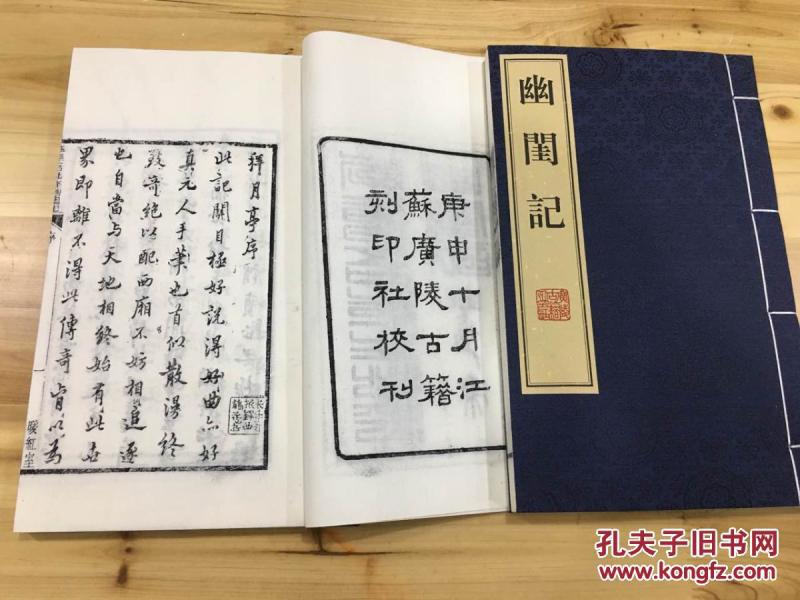 幽閨記
庚申十月江
蘇廣陵古籍
刻印社校刊
拜月亭序
此記關目極好說得好曲亦好
真元人手筆也首似散漫終
致奇絕以配西廂不妨相追逐
也自當与天地相終始有此世
界即離不得此傳奇肯以為
暖紅室
孔夫子旧书网
www.kongfz.com